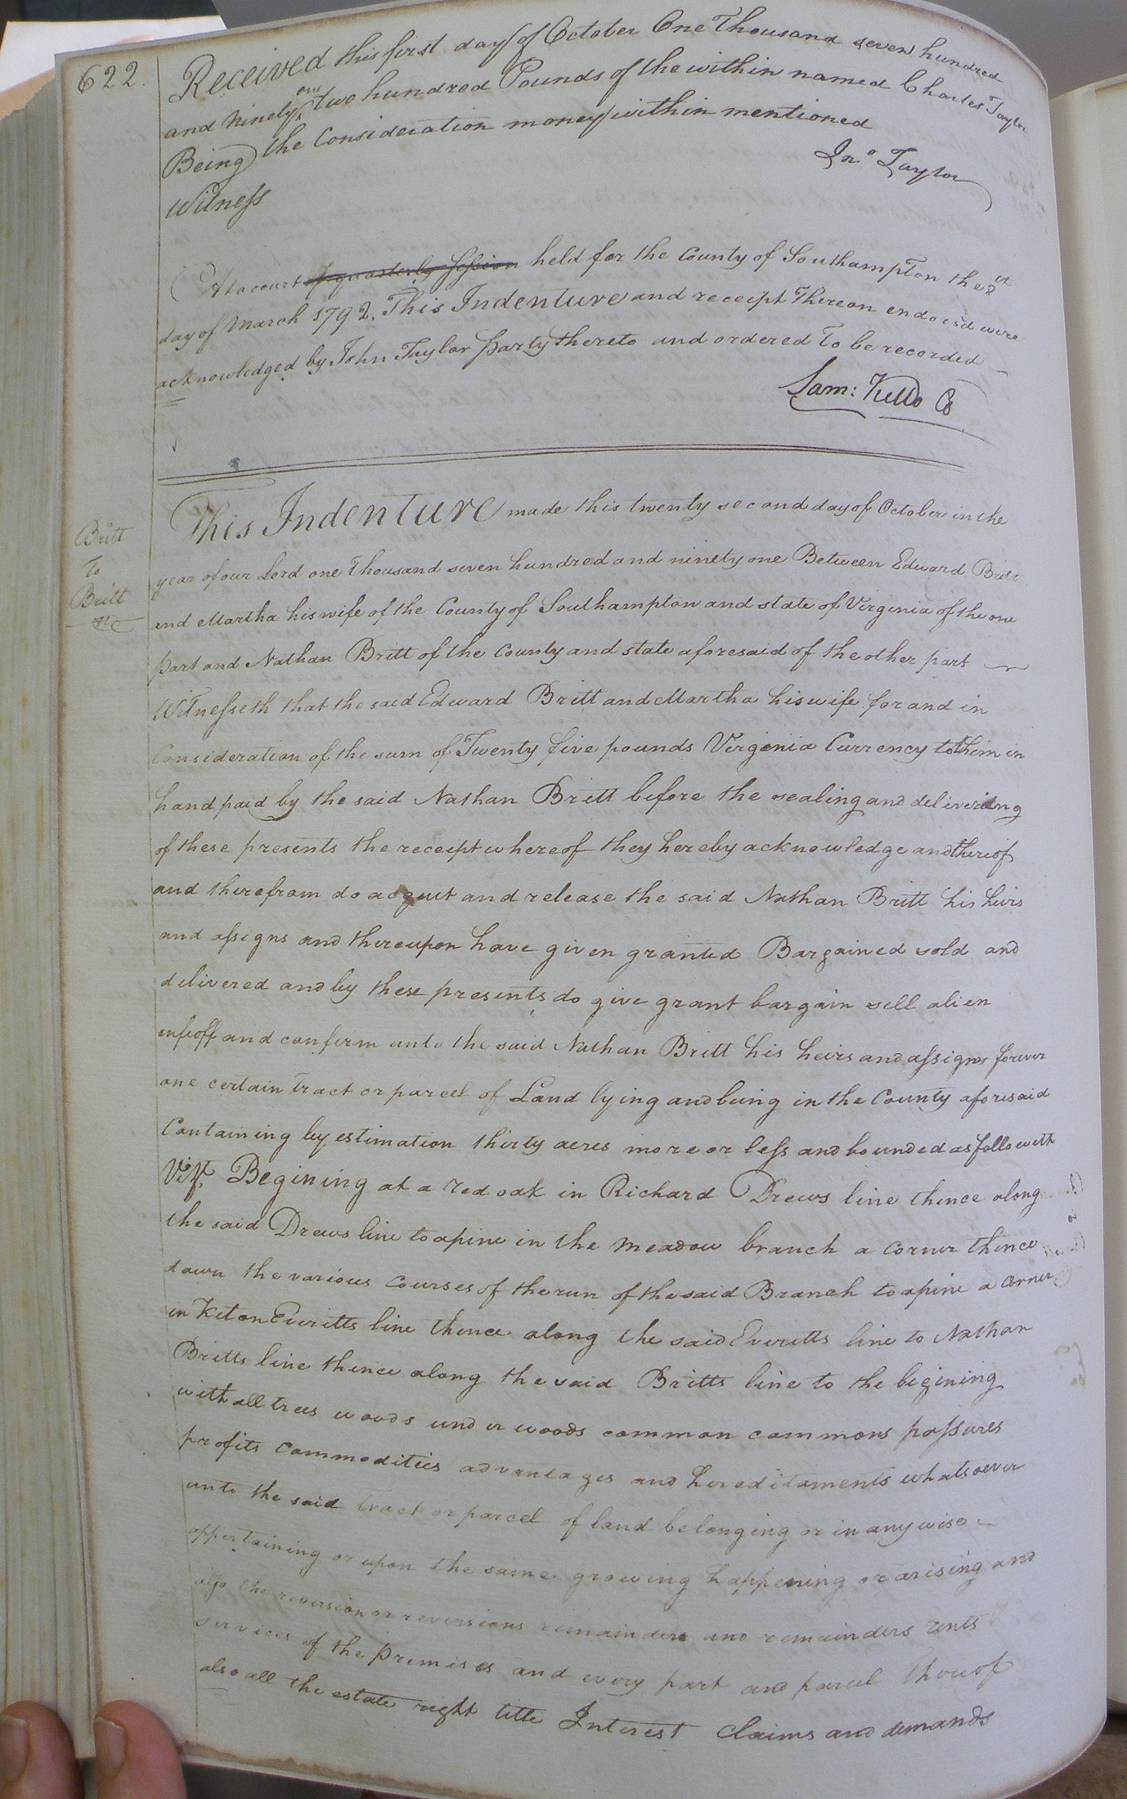 622.
Received this first day of October One Thousand seven hundred
and Ninety one two hundred Pounds of the within named Charles Taylor
Being the Consideration money within mentioned
Jno Taylor
Witness
At a court of quarterly session held for the County of Southampton the
day of March 1792. This Indenture and receipt Thereon endorsd were
acknowledged by John Taylor party thereto and ordered To be recorded
Sam: Kello
Britt
To
Britt
This Indenture made this twenty second day of October in the
year of our Lord one Thousand seven hundred and ninety one Between Edward Britt
and Martha his wife of the County of Southampton and state of Virginia of the one
part and Nathan Britt of the County and state aforesaid of the other part
Witnesseth that the said Edward Britt and Martha his wife for and in
Consideration of the sum of Twenty five pounds Virginia Currency to them in
hand paid by the said Nathan Britt before the sealing and delivering
of these presents the receipt whereof they hereby acknowledge and thereof
and therefrom do acquit and release the said Nathan Britt his heirs
and assigns and thereupon have given granted Bargained sold and
delivered and by these presents do give grant bargain sell alien
infeoff and confirm unto the said Nathan Britt his heirs and assigns forever
one certain Tract or parcel of Land lying and being in the County aforesaid
Containing by estimation thirty acres more or less and bounded as followeth
Vizt. Begining at a red oak in Richard Drews line thence along
the said Drews line to a pine in the meadow branch a corner thence
down the various courses of the run of the said Branch to a pine a corner
in Everitts line thence along the said Everitts line to Nathan
Britts line thence along the said Britts line to the begining
with all trees woods under woods common commons passures
profits commodities advantages and hereditaments whatsoever
unto the said tract or parcel of land belonging or in any wise
appertaining or upon the same growing happening or arising and
also the reversion or reversions remainder and remainders rents
services of the premises and every part and parcel thereof
also all the estate right title Interest Claims and demands